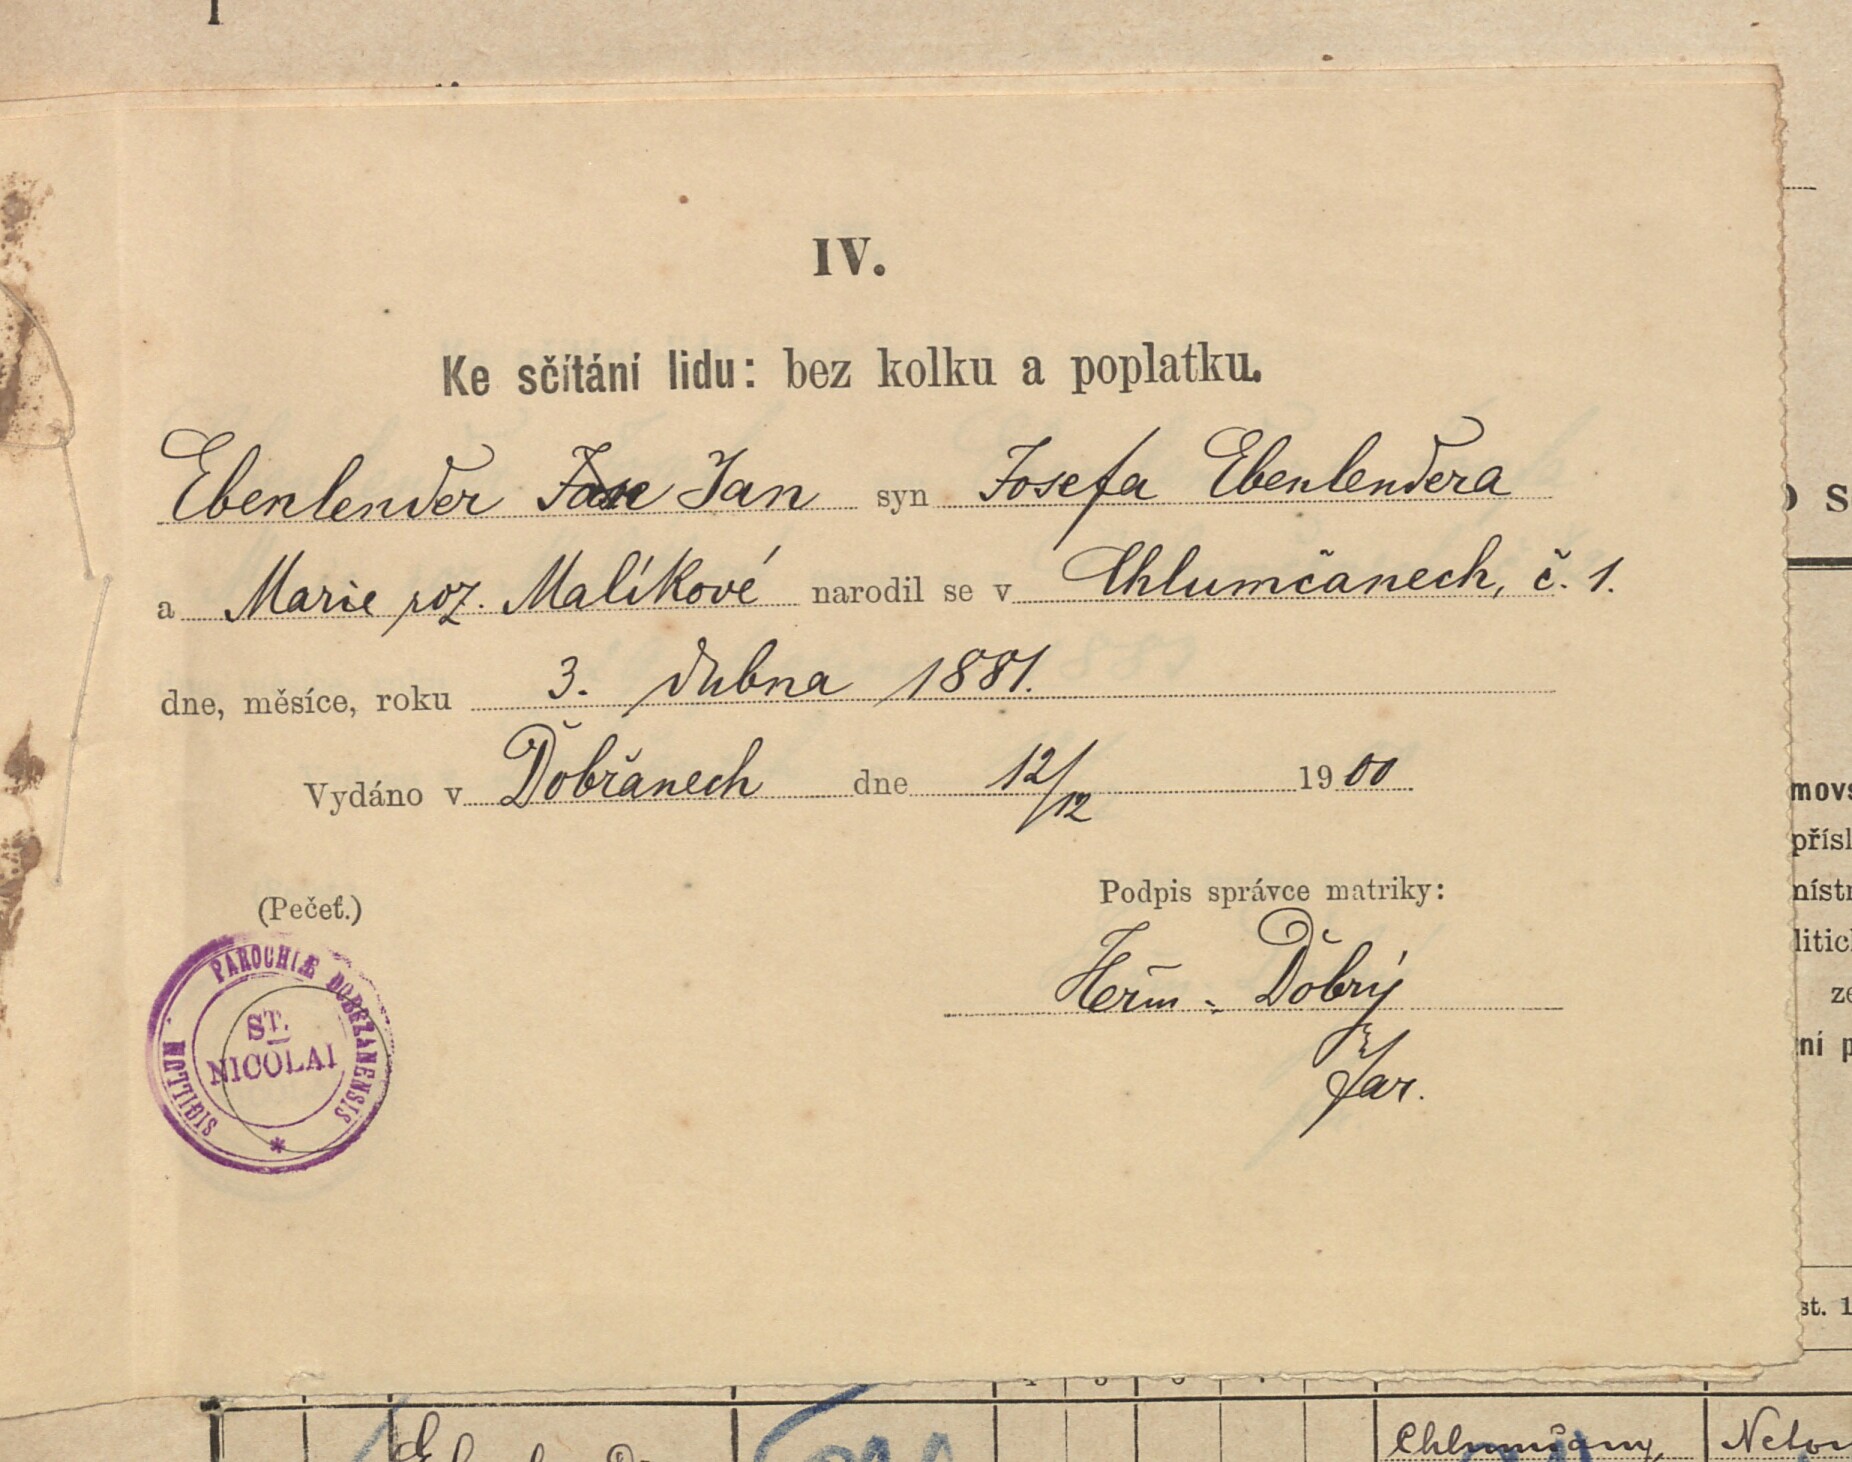 IV.
Ke sčítání lidu: bez kolku a poplatku.
Ebenlender Jan syn Josefa Ebenlendera
a Marie roz. Malíkové narodil se v Chlumčanech, č. 1.
dne, měsíce, roku 3. dubna 1881.
Vydáno v Dobřanech dne 12/12 1900
(Pečeť.)
Podpis správce matriky:
Heřm. Dobrý
far.
SIGILLUM PAROCHIÆ DOBRZANENSIS
ST.
NICOLAI
movs
přísl
místn
litick
ze
ní p
st. 1
Chlumčany,